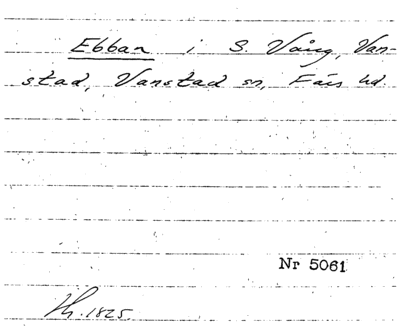 Ebban i S. Vång, Van-
stad, Vanstad sn, Färs hd.
Nr 5061
1825.